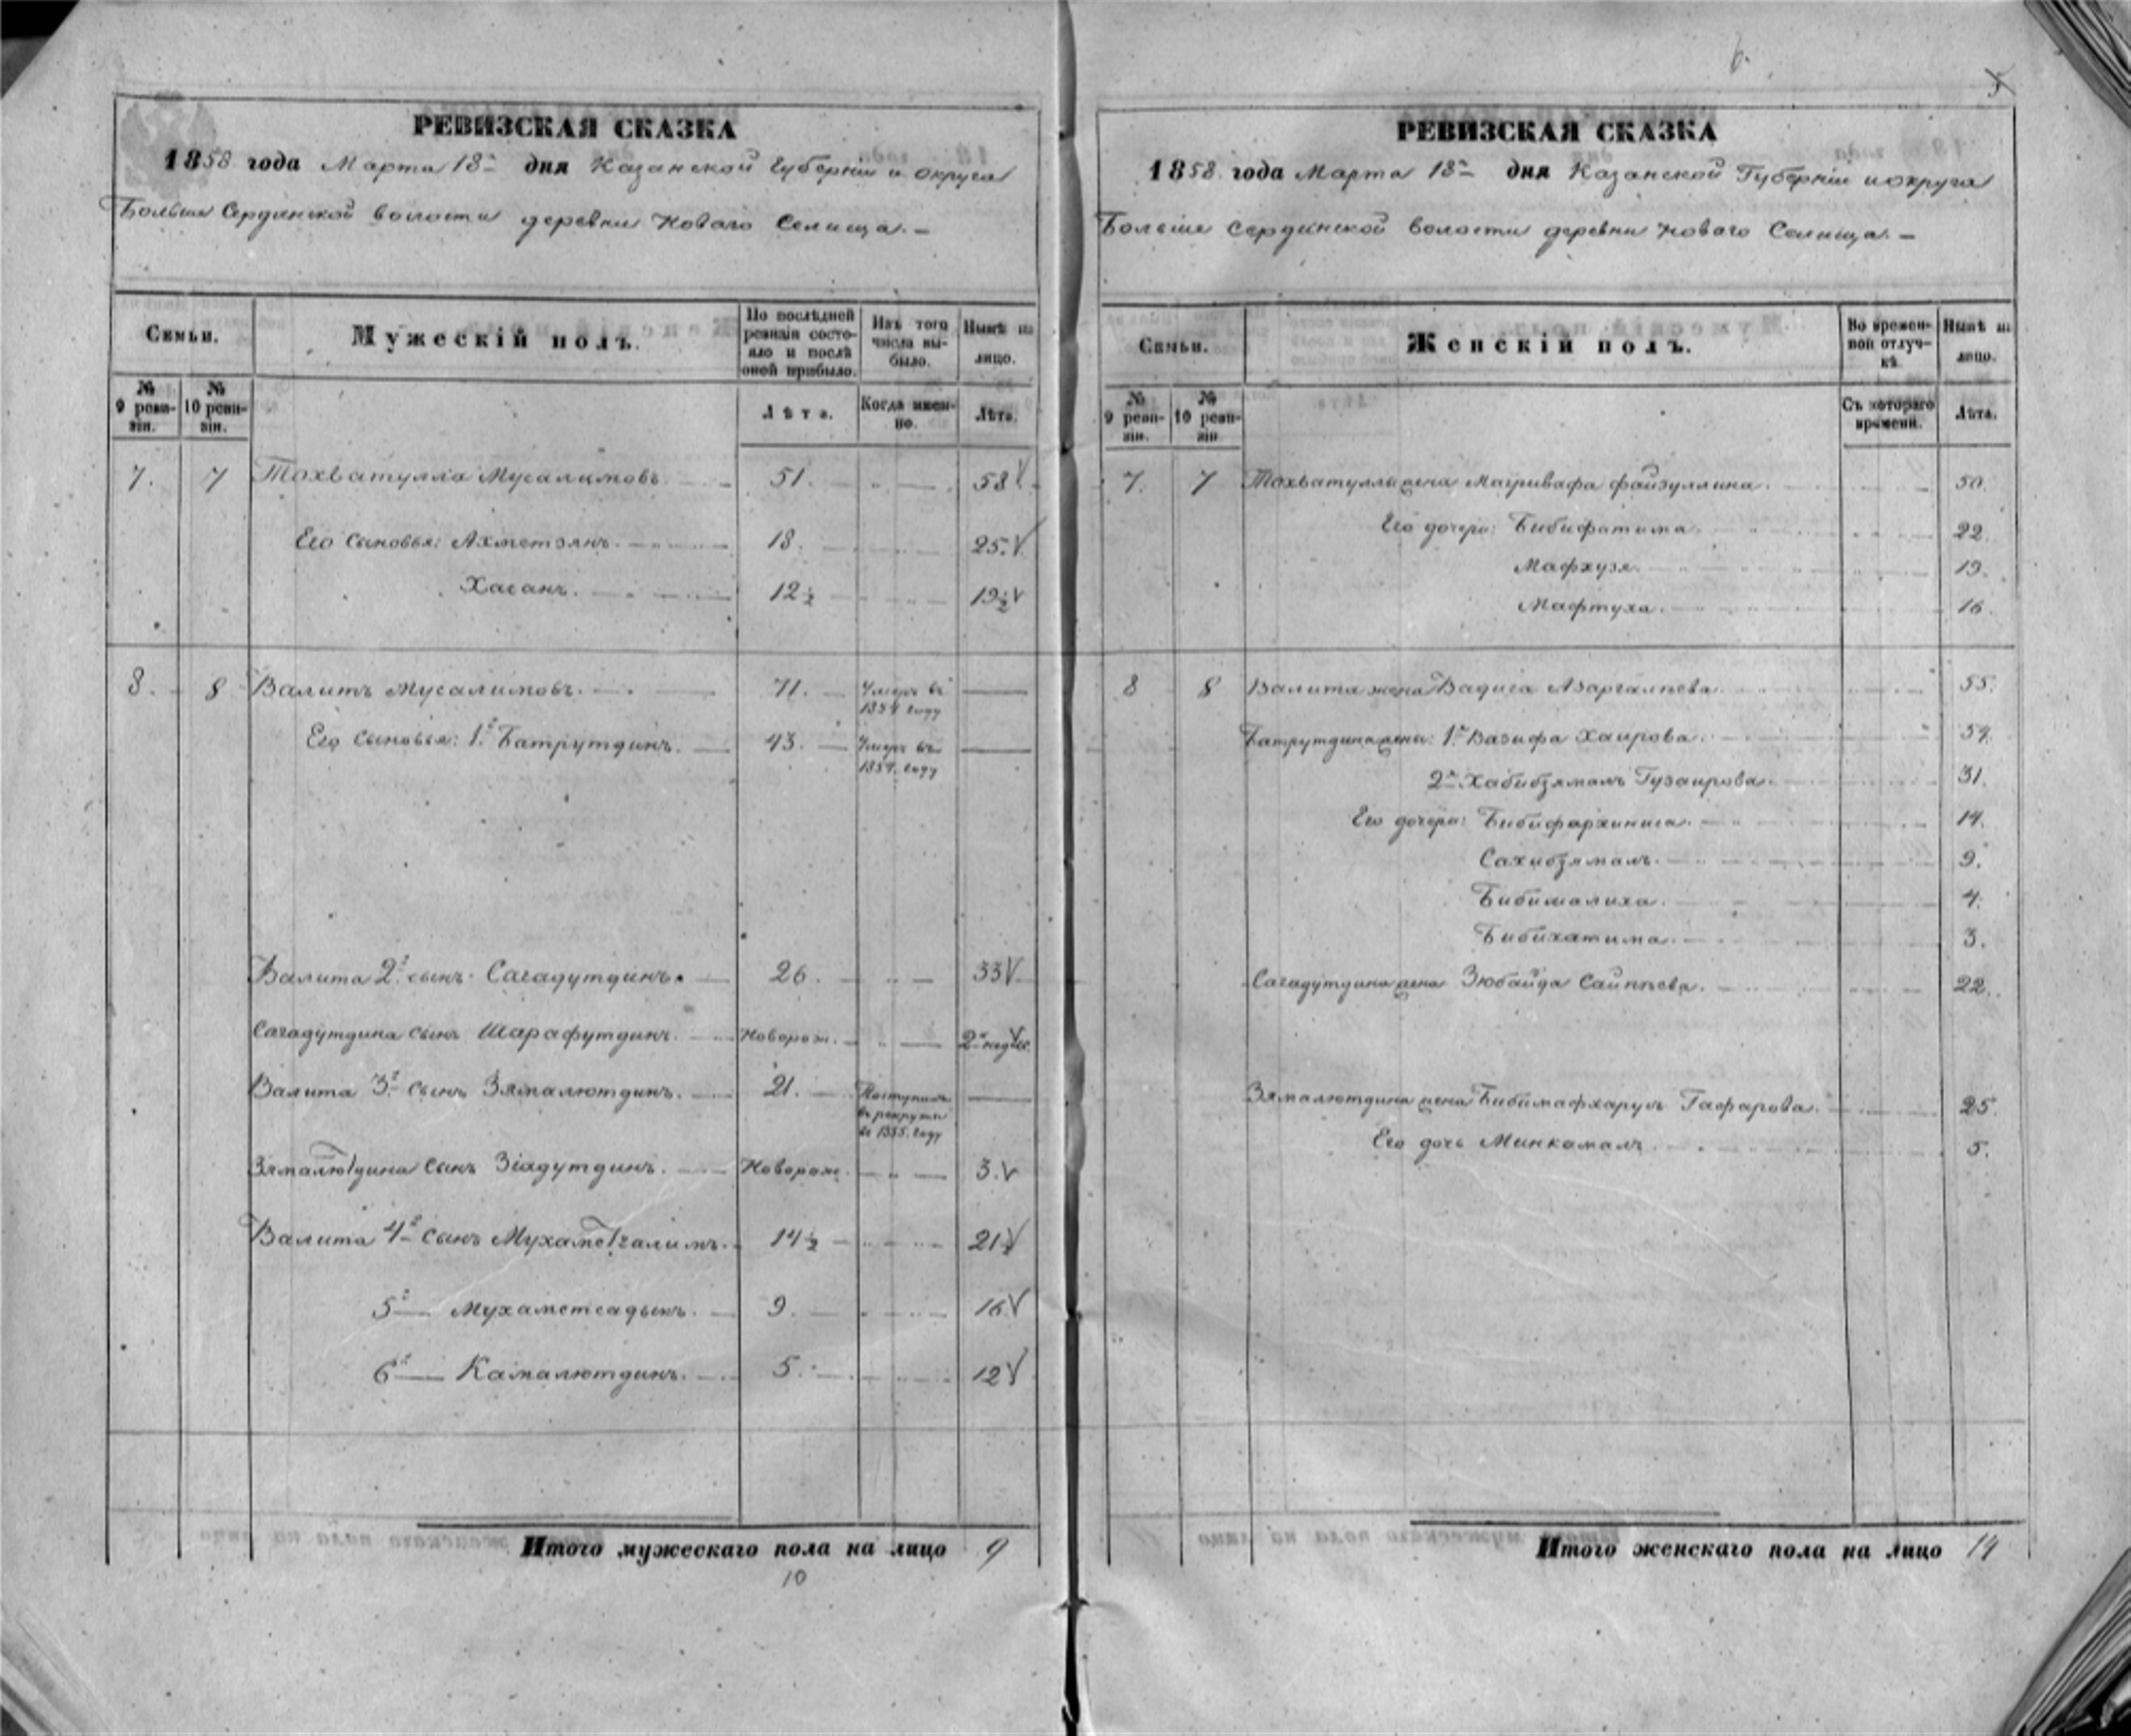 6.
5
РЕВИЗСКАЯ СКАЗКА
1858 года Марта 18го дня Казанской Губерніи и округа
Больше Сердинской волости деревни Новаго Селища.—
Семьи.
Мужескій полъ.
По послѣдней ревизіи состояло и послѣ оной прибыло.
Изъ того числа выбыло.
Нынѣ на лицо.
№ 9 ревизіи.
№ 10 ревизіи.
Лѣта.
Когда именно.
Лѣта.
7. 7 Тохватулла Мусалимовъ 51. 58
Его сыновья: Ахметзянъ. 18. 25.
Хасанъ. 12½ 19½
8. 8 Валитъ Мусалимовъ. 71. Умеръ въ 1854 году
Его сыновья: 1й Батрутдинъ. 43. Умеръ въ 1854. году
Валита 2й сынъ Сагадутдинъ. 26. 33
Сагадутдина сынъ Шарафутдинъ. Новорож. 2
Валита 3й сынъ Зямалютдинъ. 21. Поступилъ въ рекруты въ 1855. году
Зямалютдина сынъ Зіядутдинъ. Новорож. 3.
Валита 4й сынъ Мухаметгалимъ. 14½ 21½
5й — Мухаметсадыкъ. 9. 16.
6й — Камалютдинъ. 5. 12
Итого мужескаго пола на лицо 9
10
РЕВИЗСКАЯ СКАЗКА
1858. года Марта 18го дня Казанской Губерніи и округа
Больше Сердинской волости деревни Новаго Селища.—
Семьи.
Женскій полъ.
Во временной отлучкѣ.
Нынѣ на лицо.
№ 9 ревизіи.
№ 10 ревизіи
Съ котораго времени.
Лѣта.
7. 7 Тохватуллы жена Магривафа Файзуллина. 50.
Его дочери: Бибифатима 22
Мафхузя. 19.
Мафтуха. 16.
8 8 Валита жена Вадига 55.
Батрутдина жены: 1я Вазифа Хаирова.
2я Хабибзямалъ Гузаирова. 31.
Его дочери: 14.
Сахибзямалъ. 9.
Бибималиха. 4.
Бибихатима. 3.
Сагадутдина жена Зюбайда Саипѣева. 22.
Зямалютдина жена Гафарова. 25.
Его дочь Минкамалъ. 5.
Итого женскаго пола на лицо 14